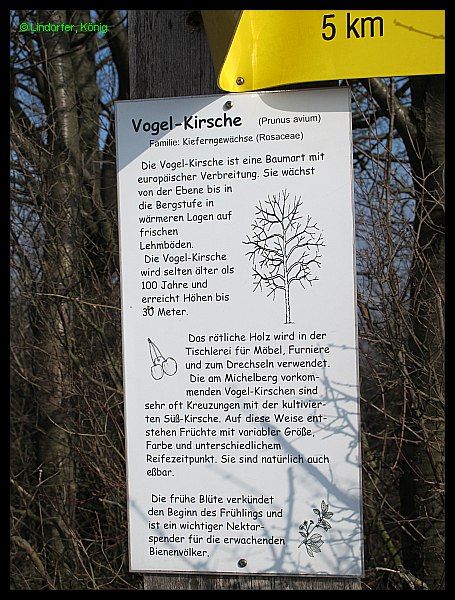 © Lindorfer, König
5 km
Vogel-Kirsche (Prunus avium)
Familie: Kieferngewächse (Rosaceae)
Die Vogel-Kirsche ist eine Baumart mit
europäischer Verbreitung. Sie wächst
von der Ebene bis in
die Bergstufe in
wärmeren Lagen auf
frischen
Lehmböden.
Die Vogel-Kirsche
wird selten älter als
100 Jahre und
erreicht Höhen bis
30 Meter.
Das rötliche Holz wird in der
Tischlerei für Möbel, Furniere
und zum Drechseln verwendet.
Die am Michelberg vorkom-
menden Vogel-Kirschen sind
sehr oft Kreuzungen mit der kultivier-
ten Süß-Kirsche. Auf diese Weise ent-
stehen Früchte mit variabler Größe,
Farbe und unterschiedlichem
Reifezeitpunkt. Sie sind natürlich auch
eßbar.
Die frühe Blüte verkündet
den Beginn des Frühlings und
ist ein wichtiger Nektar-
spender für die erwachenden
Bienenvölker.